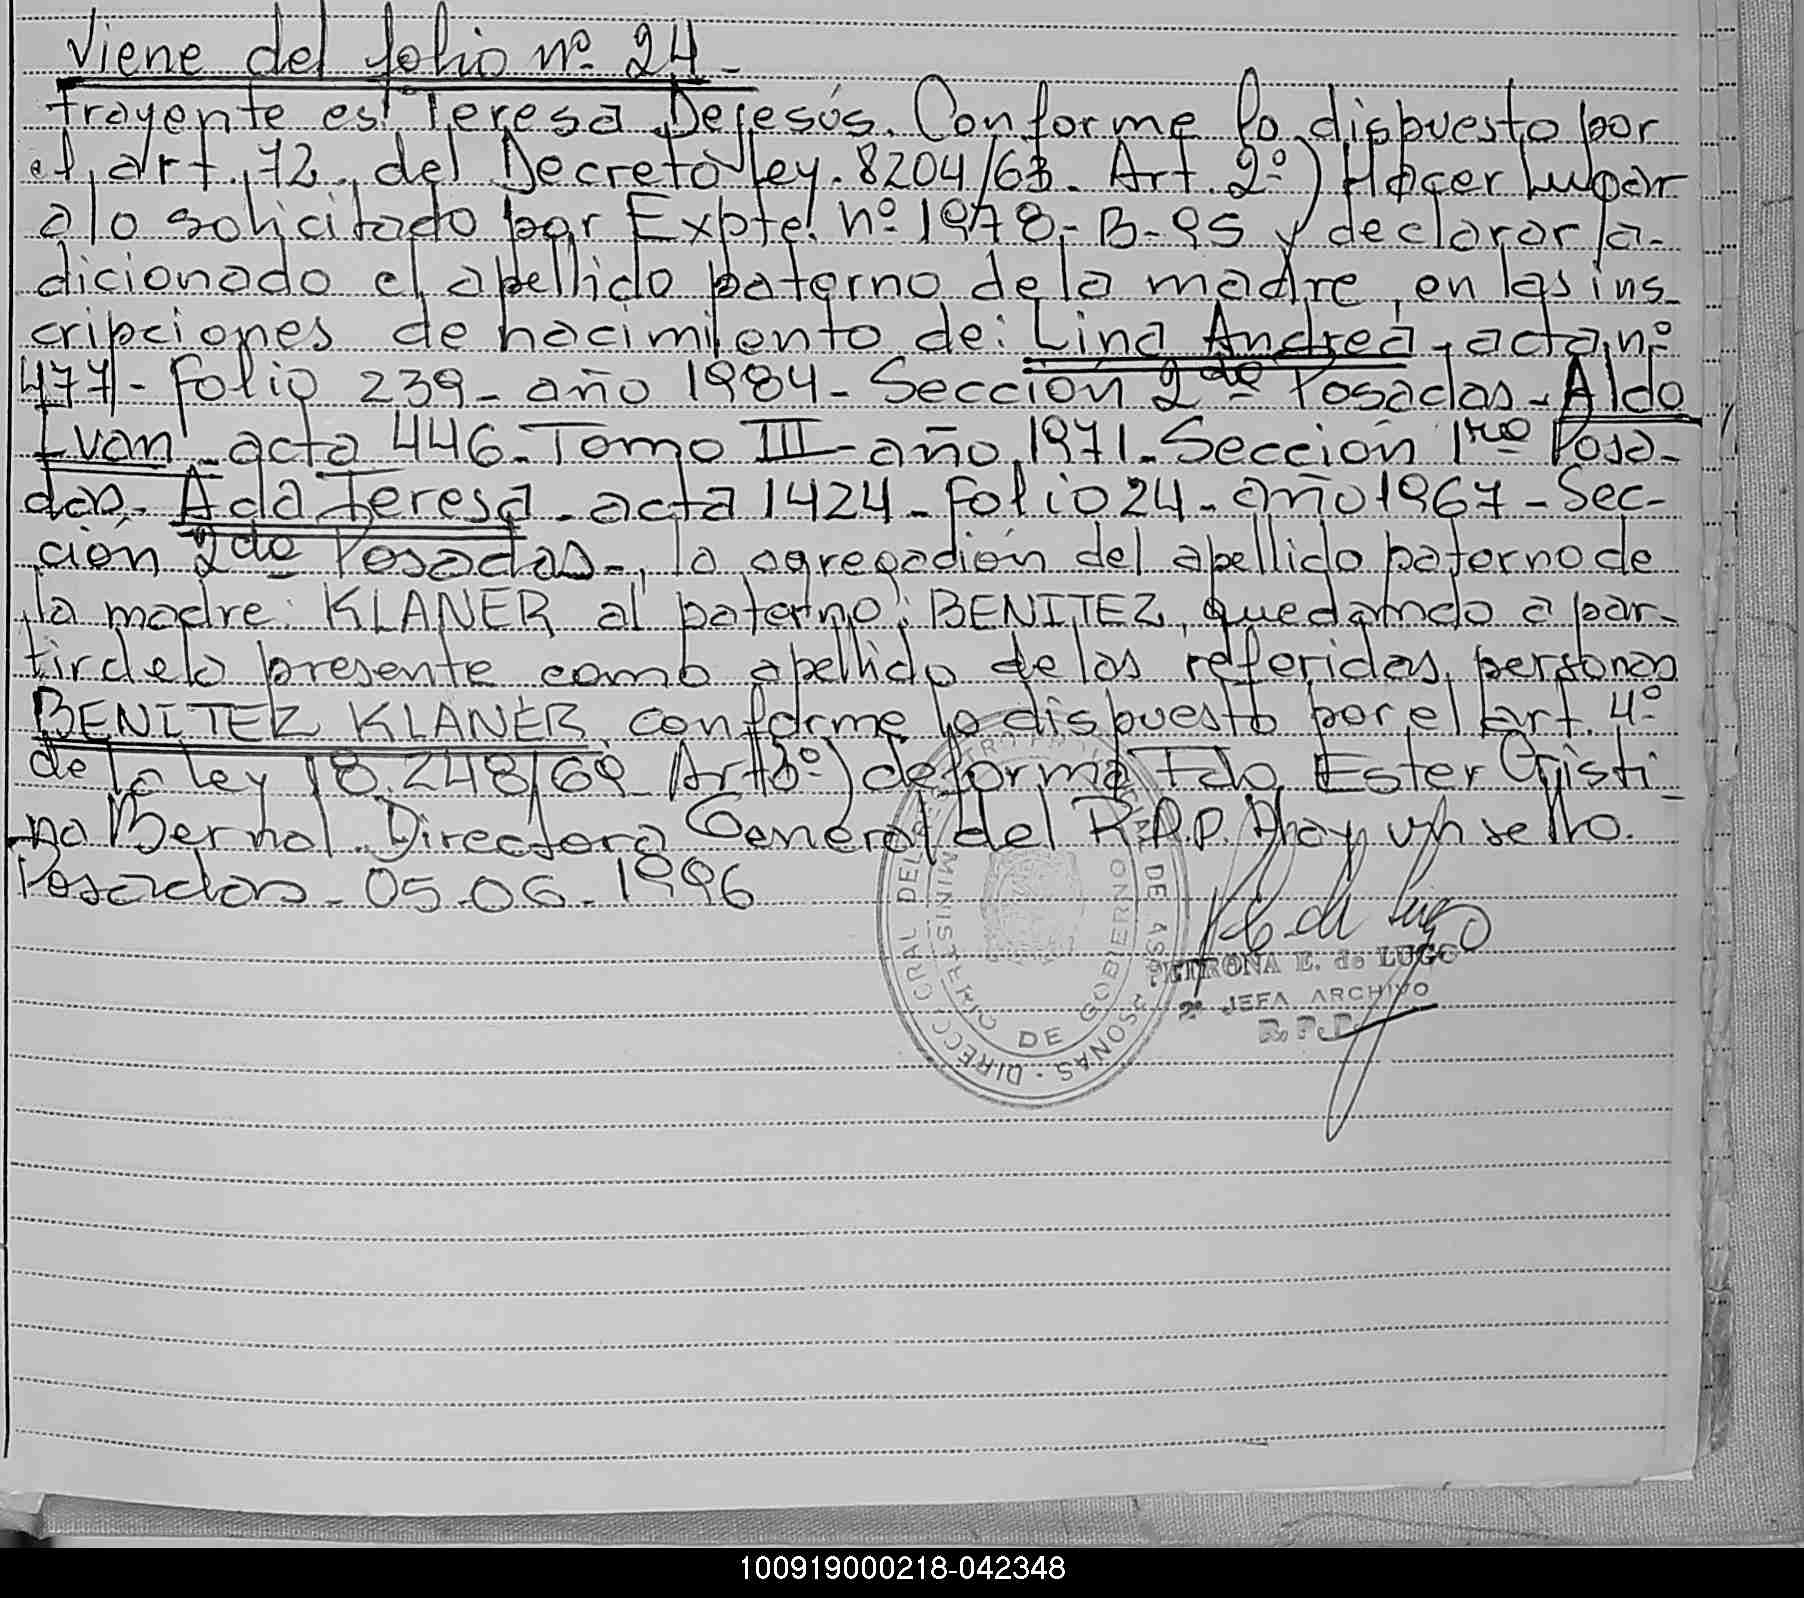 Viene del folio nº 24-
trayente es Teresa Dejesús. Conforme lo dispuesto por
el art. 72 del Decreto ley. 8204/63. Art. 2º) Hacer lugar
a lo solicitado por Expte. nº 1978-B-95 y declarar a-
dicionado el apellido paterno de la madre, en las ins-
cripciones de nacimiento de: Lina Andrea, acta nº
477- Folio 239- año 1984- Sección 2da Posadas- Aldo
Ivan- acta 446- Tomo III- año 1971- Sección 1ra Posa-
das- Ada Teresa- acta 1424- Folio 24- año 1967- Sec-
ción 2da Posadas-, la agregación del apellido paterno de
la madre: KLANER al paterno: BENITEZ, quedando a par-
tir de la presente como apellido de las referidas personas
BENITEZ KLANER, conforme lo dispuesto por el art. 4º
de la ley 18.248/69 Art 3º) de forma Fdo. Ester Cristi-
na Bernal. Directora General del R.P.P. Hay un sello.
Posadas- 05-06-1996
DIRECC GRAL DEL REGISTRO PROVINCIAL DE LAS PERSONAS
MINISTERIO DE GOBIERNO
PETRONA E. de LUGO
2º JEFA ARCHIVO
R.P.P.
100919000218-042348